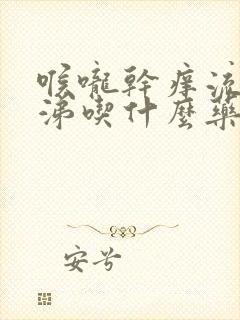 喉嚨幹癢流
涕喫什麼藥
安兮